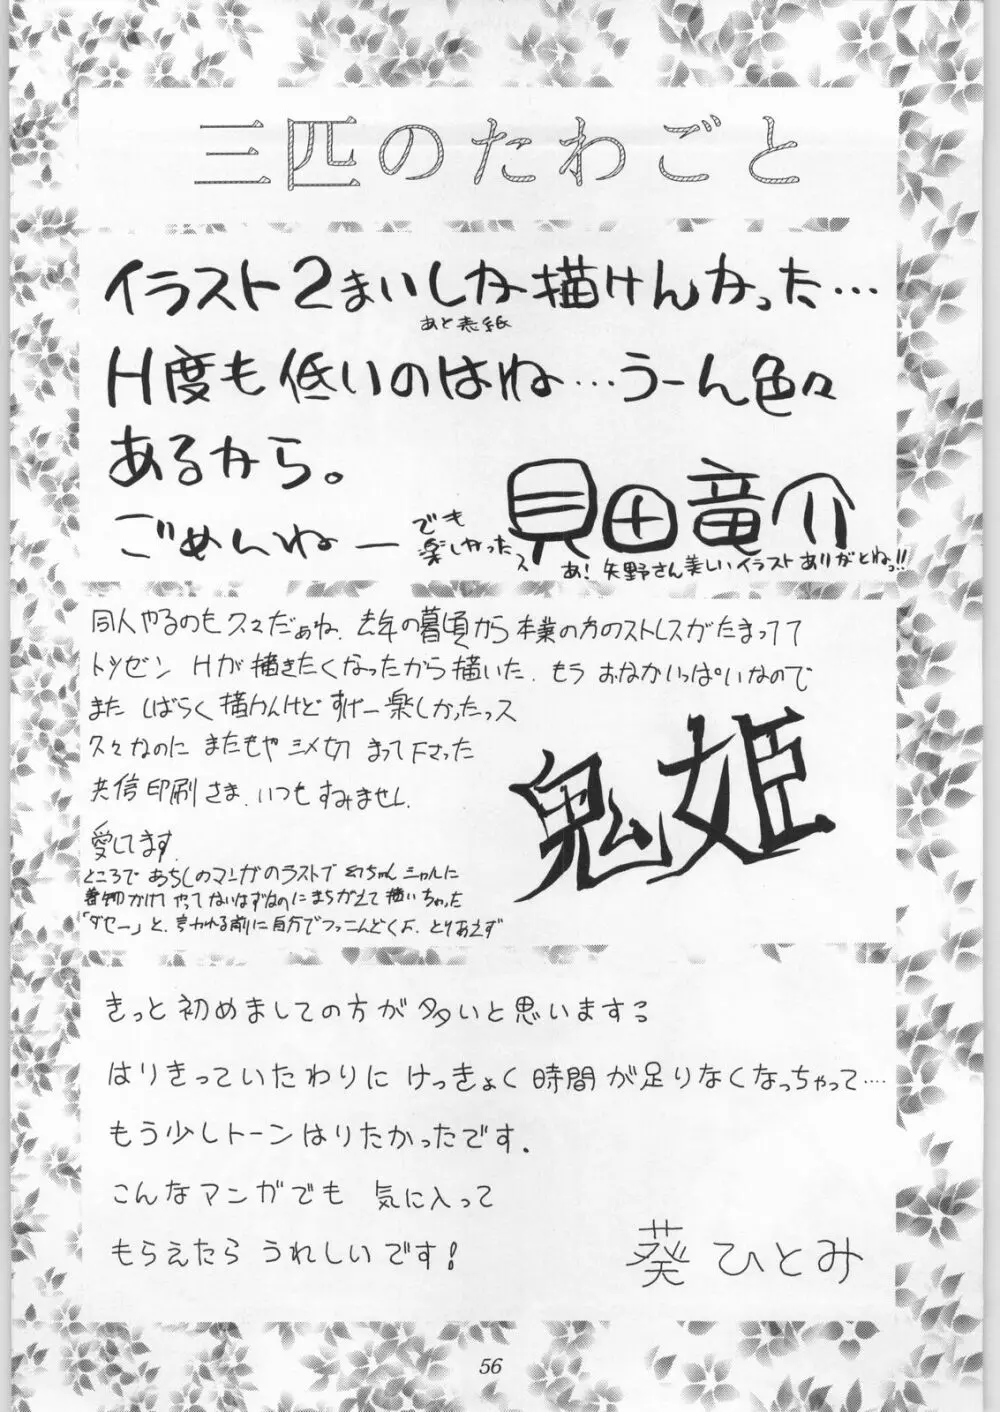 三匹のたわごと
イラスト2まいしか描けんかった…
あと表紙
H度も低いのはね…うーん色々
あるから。
ごめんねー
でも
楽しかったス
貝田竜介
あ! 矢野さん美しいイラストありがとねっ!!
同人やるのも久々だぁね、去年の暮頃から本業の方のストレスがたまってて
トツゼン Hが描きたくなったから描いた. もう おなかいっぱいなので
また しばらく描かんけど すげー楽しかったっス
久々なのに またもや シメ切 まって下さった
共信印刷さま、いつもすみません.
愛してます.
ところで あちしのマンガのラストで 幻ちゃん シャルに
着物かけてやってないはずなのにまちがえて描いちゃった
「ダセー」と、言われる前に自分でつっこんどくよ、とりあえず
鬼姫
きっと初めましての方が多いと思いまする
はりきっていたわりに けっきょく時間が足りなくなっちゃって….
もう少しトーンはりたかったです.
こんなマンガでも 気に入って
もらえたら うれしいです!
葵ひとみ
56